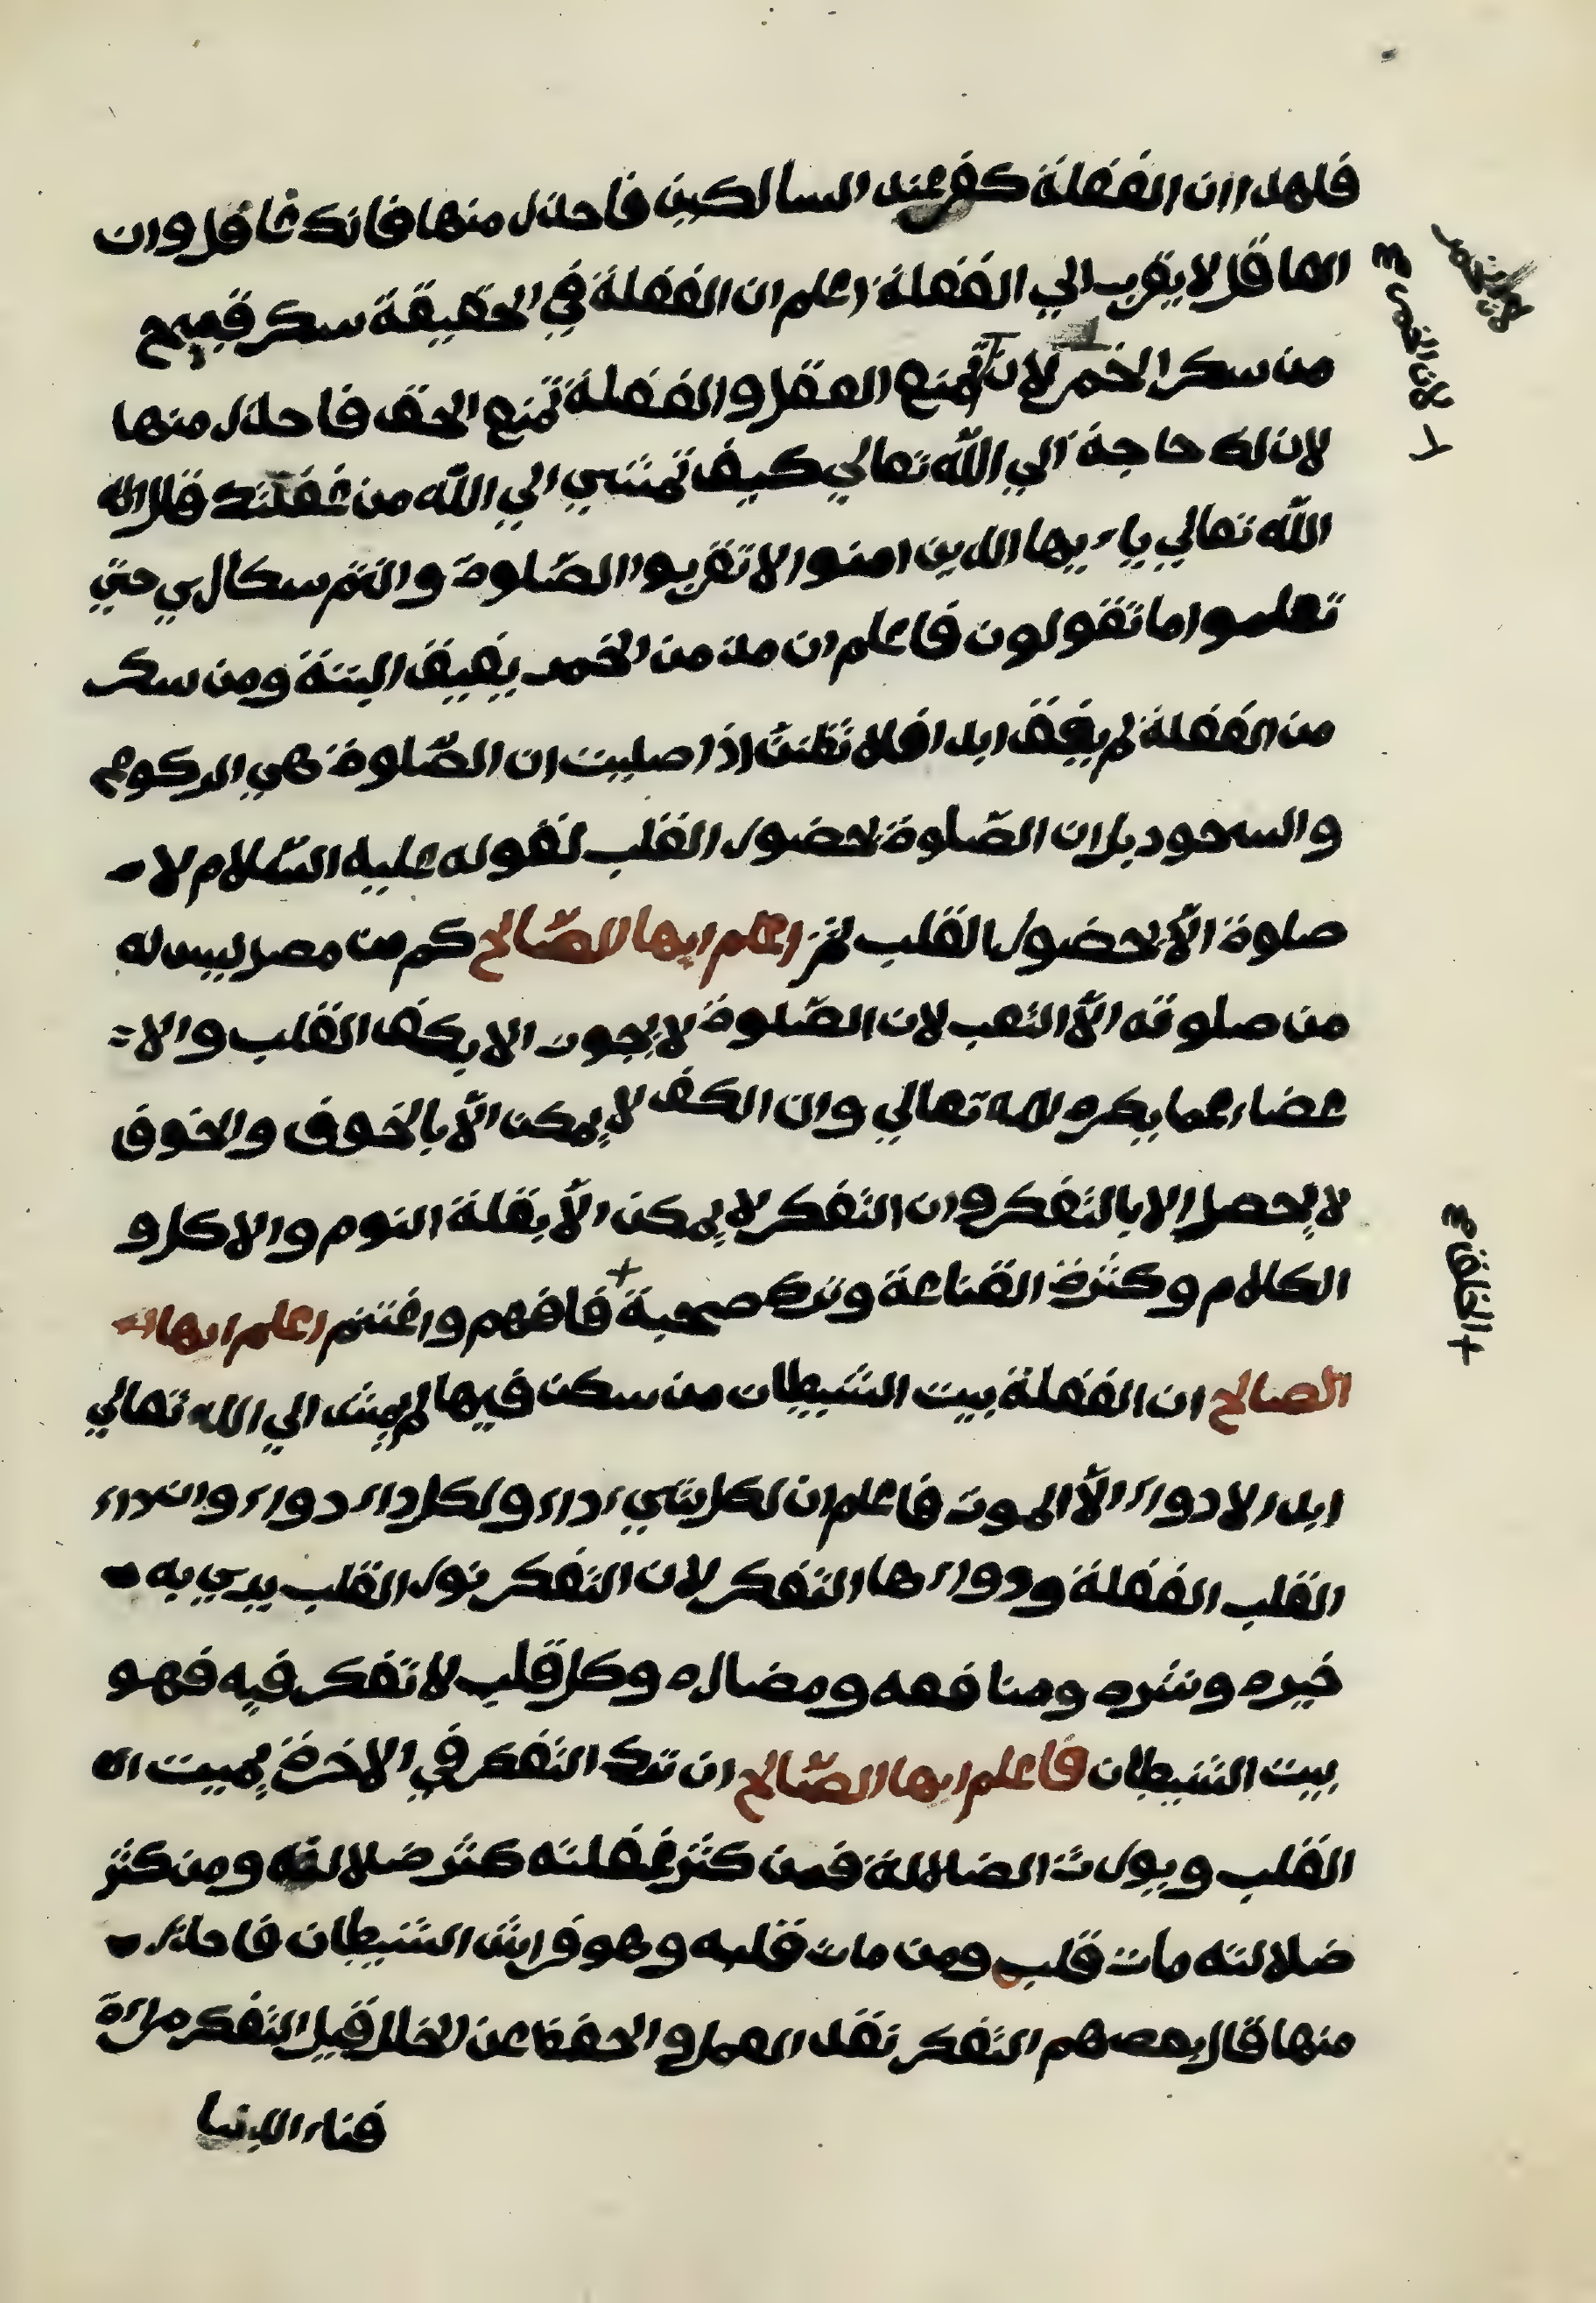 فلهذا ان الغفلة كفر عند السالكين فاحذر منها فانك عاقل وان
العاقل لا يقرب الي الغفلة اعلم ان الغفلة في الحقيقة سكر قبيح
من سكر الخمر لان تمنع العقل والغفلة تمنع الحق فاحذر منها
لان لك حاجة الي الله تعالي كيف تمشي الي الله من غفلتك قال الله
الله تعالي يا ءيها الذين امنوا لا تقربوا الصّلوة وانتم سكاري حتي
تعلموا ما تقولون فاعلم ان من من الخمر يفيق البتة ومن سكر
من الغفلة لم يفق ابدا فلا تظننّ اذا صليت ان الصّلوة هي الركوع
والسجود بل ان الصّلوة بحضور القلب لقوله عليه السّلام لا
صلوة الاّ بحضور القلب ثم اعلم ايها الصّالح كم من مصل ليس له
من صلوته الاّ التعب لان الصّلوة لا يجوز الا بكف القلب والا =
عضاء عما يكره الله تعالي وان الكف لا يمكن الاّ بالخوف والخوف
لا يحصل الا بالتفكر وان التفكر لا يمكن الاّ بقلة النوم والاكل و
الكلام وكثرة القناعة وترك صحبة + فافهم واغتنم اعلم ايها
الصالح ان الغفلة بيت الشيطان من سكن فيها لم يمش الي الله تعالي
ابدا لا دواء الاّ الموت فاعلم ان لكل شيء داء ولكل داء دواء والداء
القلب الغفلة ودواءها التفكر لان التفكر نور القلب يري به
خيره وشره ومنافعه ومضاره وكل قلب لا تفكر فيه فهو
بيت الشيطان فاعلم ايها الصّالح ان ترك التفكر في الاخرة يميت ال
القلب ويورث الضلالة فمن كثر غفلته كثر ضلالته ومن كثر
ضلالته مات قلب ومن مات قلبه وهو فراش الشيطان فاحذر
منها قال بعضهم التفكر نقد العمل والحفظ عن الخلل قيل التفكر مرءاة
فناء الدنيا
لان الخمر صح
+ الخلق صح